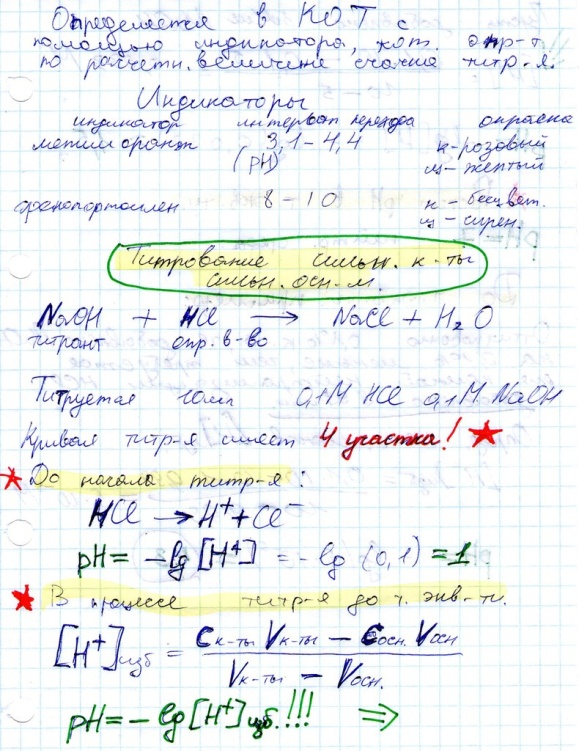 Определяется в КОТ с
помощью индикатора, кот. опр-т
по расчетн. величине скачка титр-я.
Индикаторы
индикатор интервал перехода окраска
метилоранж 3,1 – 4,4 к-розовый
(pH) щ-желтый
фенолфталеин 8 – 10 к – бесцвет.
щ – сирен.
Титрование сильн. к-ты
сильн. осн-м.
NaOH + HCl → NaCl + H₂O
титрант опр. в-во
Титруется 0,1М HCl 0,1М NaOH
Кривая титр-я имеет 4 участка!
До начала титр-я:
HCl → H⁺ + Cl⁻
pH = -lg [H⁺] = -lg (0,1) = 1
В процессе титр-я до т. экв-ти.
[H⁺]изб = Cк-ты Vк-ты – Cосн. Vосн
Vк-ты – Vосн.
pH = -lg [H⁺]изб.!!! ⇒